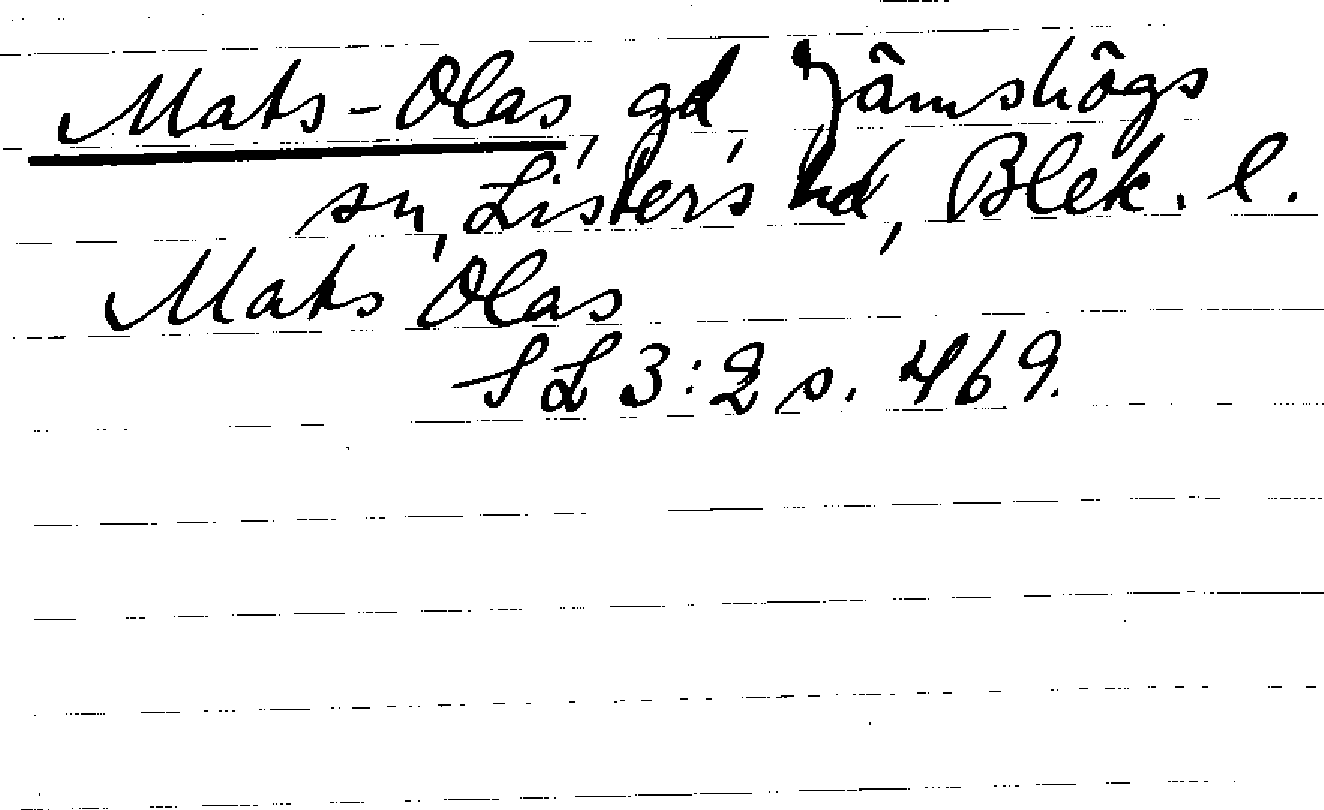 Mats-Olas, gd, Jämshögs
sn, Listers hd, Blek. l.
Mats Olas
SL 3:2 s. 469.